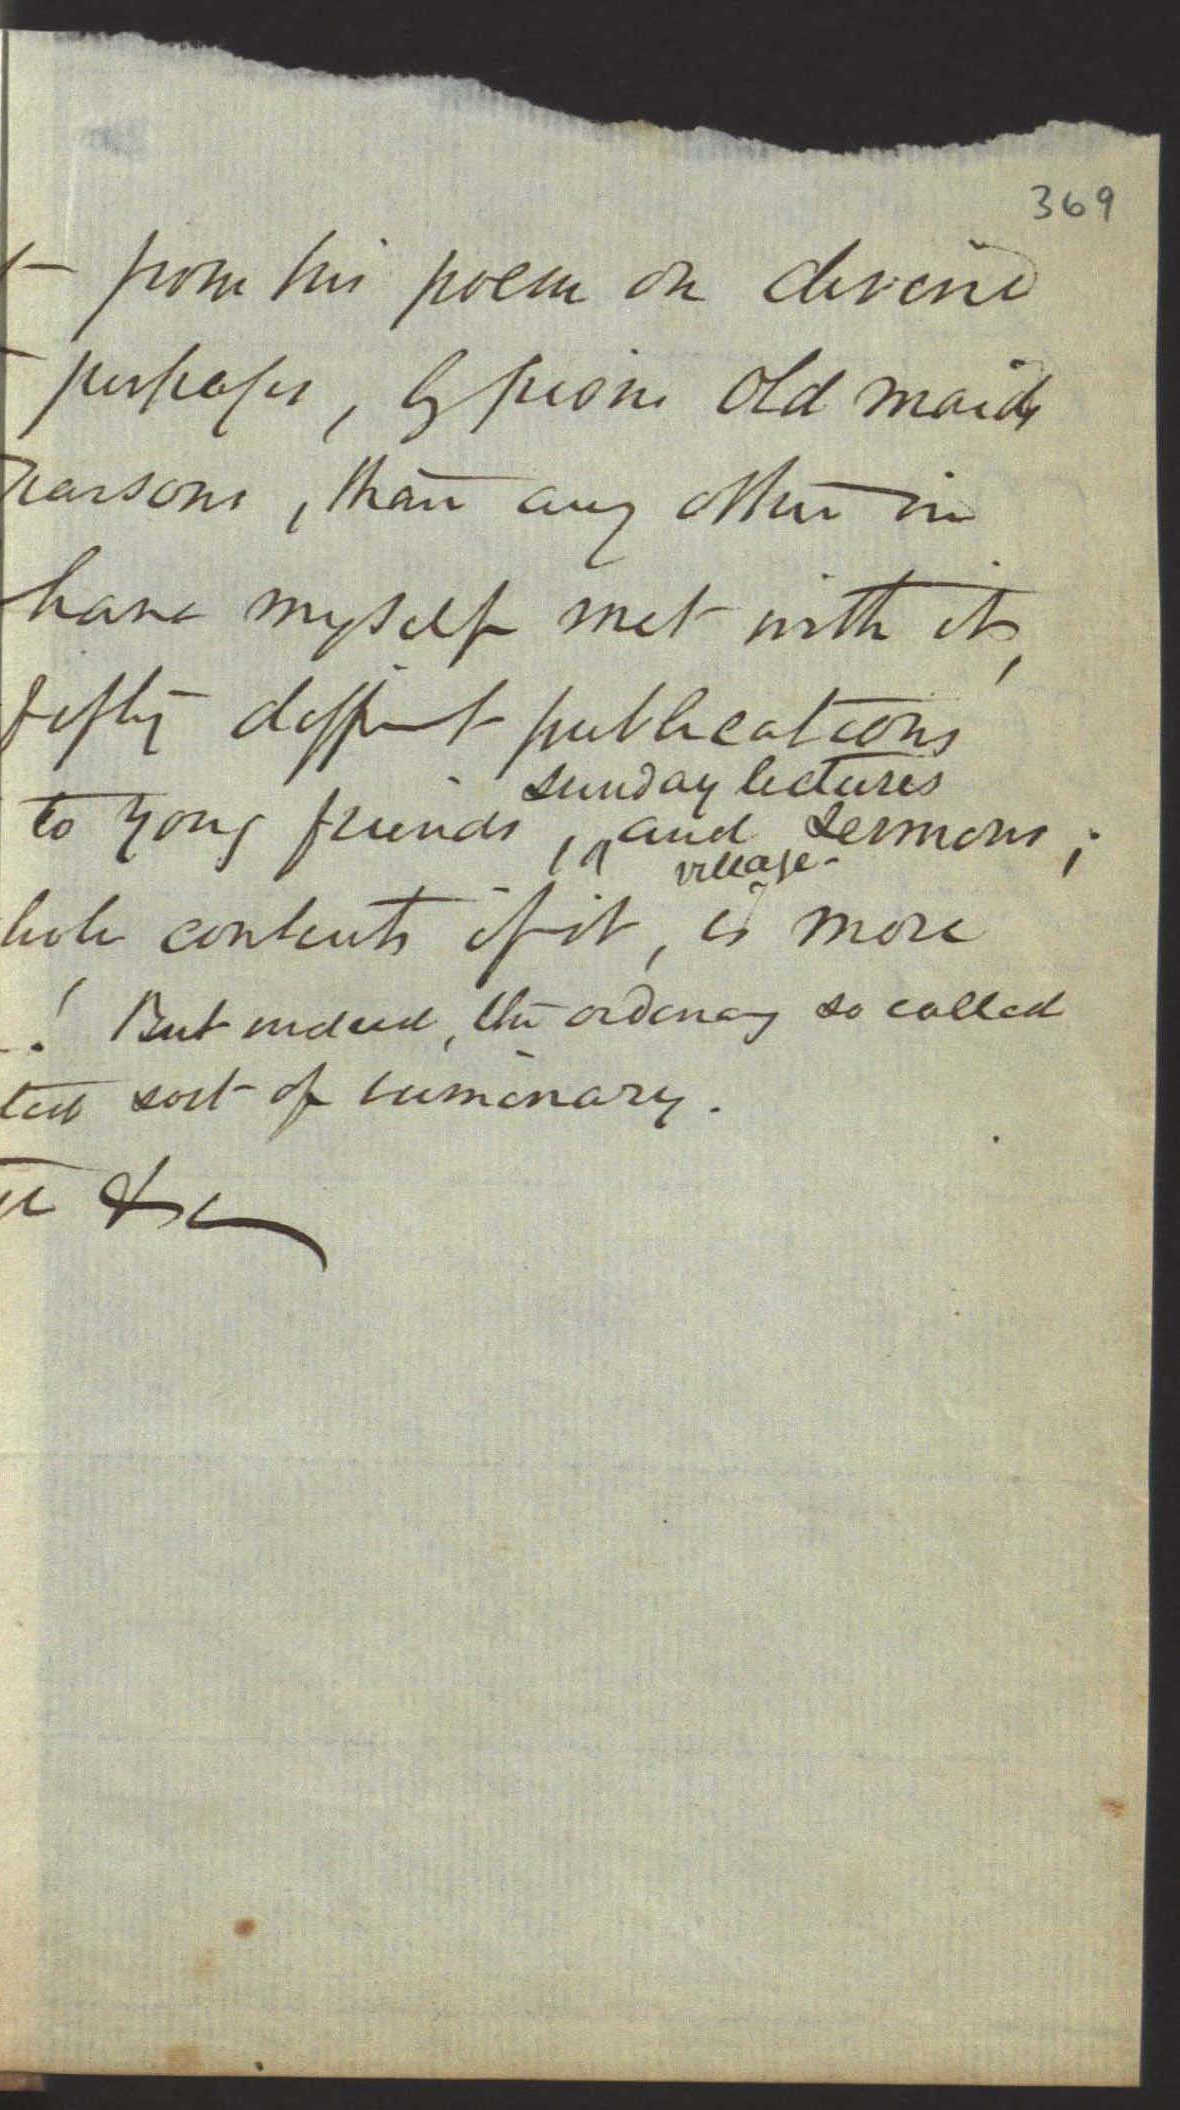 369
from his poem on divine
perhaps, by pious old maids
parsons, than any other in
have myself met with it,
fifty different publications
sunday lectures
to yong friends, and sermons;
village
contents of it, is more
! But indeed, the ordinary so called
sort of luminary.
&c